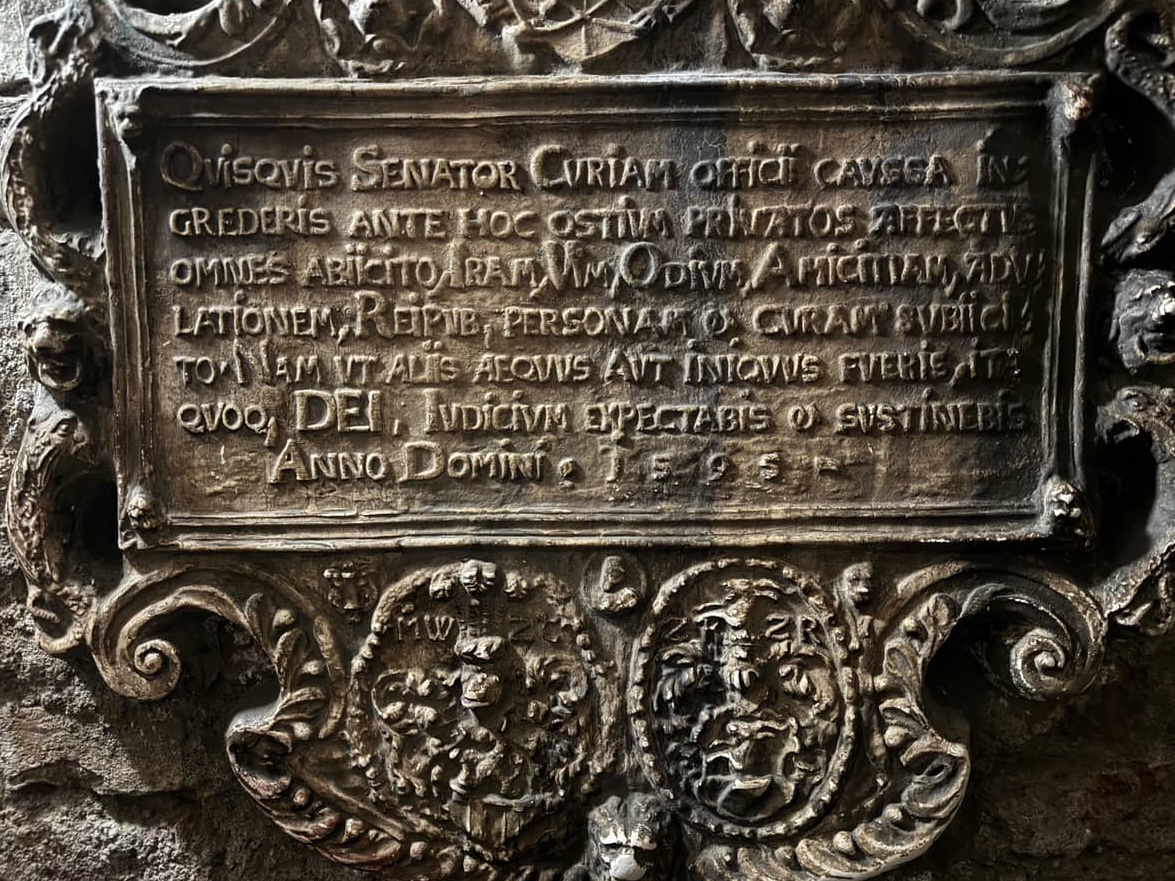 QVISQVIS SENATOR CVRIAM OFFICII CAVSSA IN:
GREDERIS ANTE HOC OSTIVM PRIVATOS AFFECTVS
OMNES ABIICITO, IRAM, VIM, ODIVM, AMICITIAM, ADV
LATIONEM, REIPVB, PERSONAM & CVRAM SVBIICI:
TO. NAM VT ALIIS AEQVVS AVT INIQVVS FVERIS, ITA
QVOQ, DEI, IVDICIVM EXPECTABIS & SVSTINEBIS
ANNO DOMINI : 1595
MW ZR